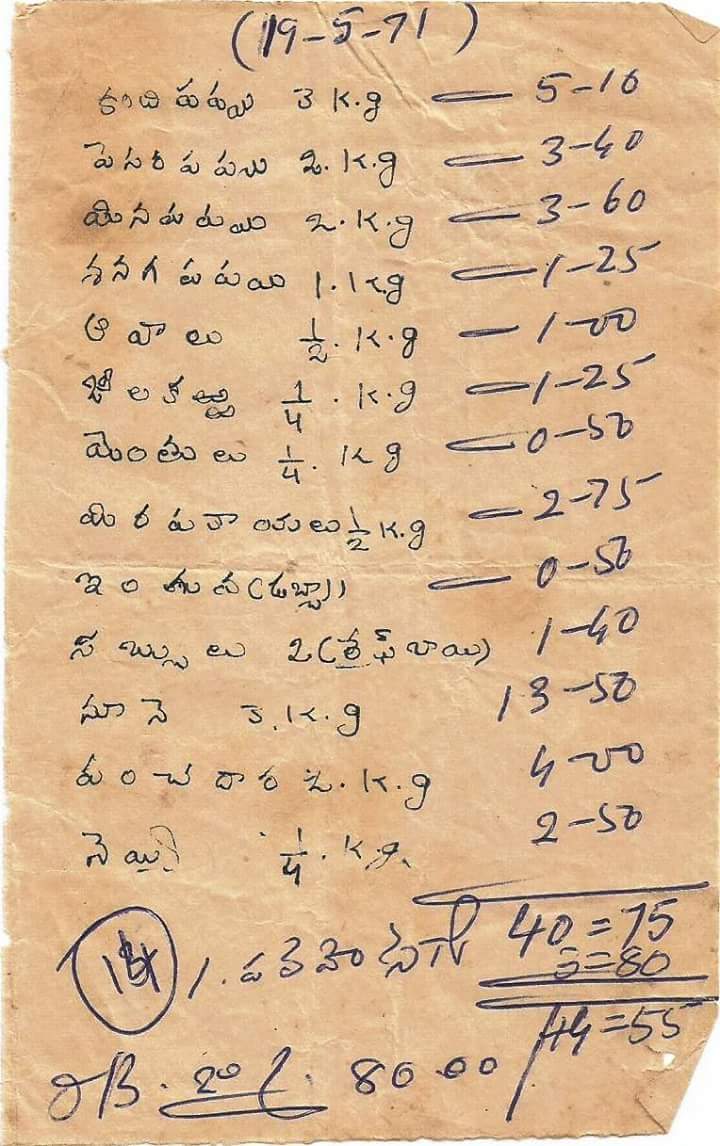 (19-5-71)
కంది పప్పు 3 K.g — 5-10
పెసర పప్పు 2. K.g — 3-40
మినపప్పు 2. K.g — 3-60
శనగ పప్పు 1. Kg — 1-25
ఆవాలు 1/2. K.g — 1-00
జీలకఱ్ఱ 1/4. K.g — 1-25
మెంతులు 1/4. K g — 0-50
మిరపకాయలు 1/2 K.g — 2-75
ఇంగువ (డబ్బా) — 0-50
సబ్బులు 2 (లైఫ్ బాయి) 1-40
నూనె 3. K.g 13-50
పంచదార 2. K.g 4-00
నెయ్యి 1/4. K.g. 2-50
40=75
1. 3=80
44=55
80.00